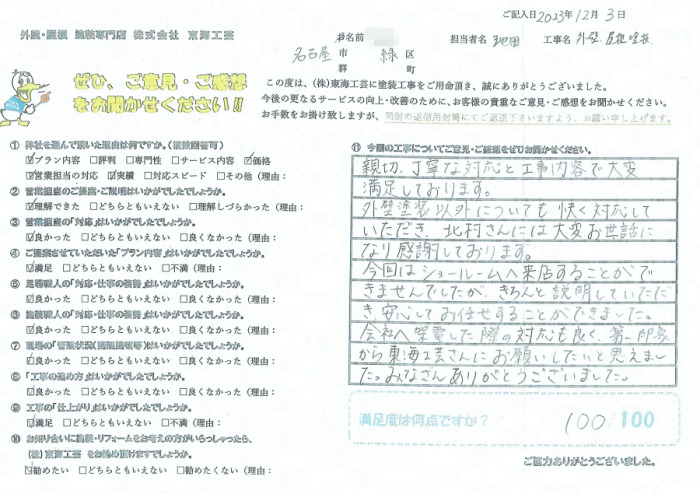 ご記入日 2023年12月3日
外壁・屋根 塗装専門店 株式会社 東海工芸
お名前
担当者名 池田 工事名 外壁、屋根塗装
名古屋 市 緑 区
郡 町
ぜひ、ご意見・ご感想
をお聞かせください!!
この度は、(株)東海工芸に塗装工事をご用命頂き、誠にありがとうございました。
今後の更なるサービスの向上・改善のために、お客様の貴重なご意見・ご感想をお聞かせください。
お手数をお掛け致しますが、同封の返信用封筒にてご返送下さいますよう、お願い申し上げます。
① 弊社を選んで頂いた理由は何ですか。(複数回答可)
☑プラン内容 □評判 □専門性 □サービス内容 ☑価格
☑営業担当の対応 ☑実績 □対応スピード □その他(理由:
② 営業担当のご提案・ご説明はいかがでしたでしょうか。
☑理解できた □どちらともいえない □理解しづらかった(理由:
③ 営業担当の「対応」はいかがでしたでしょうか。
☑良かった □どちらともいえない □良くなかった(理由:
④ ご提案させていただいた「プラン内容」はいかがでしたでしょうか。
☑満足 □どちらともいえない □不満(理由:
⑤ 足場職人の「対応・仕事の姿勢」はいかがでしたでしょうか。
☑良かった □どちらともいえない □良くなかった(理由:
⑥ 塗装職人の「対応・仕事の姿勢」はいかがでしたでしょうか。
☑良かった □どちらともいえない □良くなかった(理由:
⑦ 現場の「管理状況(整理整頓等)」はいかがでしたでしょうか。
☑良かった □どちらともいえない □良くなかった(理由:
⑧ 「工事の進め方」はいかがでしたでしょうか。
☑良かった □どちらともいえない □良くなかった(理由:
⑨ 工事の「仕上がり」はいかがでしたでしょうか。
☑満足 □どちらともいえない □不満(理由:
⑩ お知り合いに塗装・リフォームをお考えの方がいらっしゃったら、
(株)東海工芸 をお勧め頂けますでしょうか。
☑勧めたい □どちらともいえない □勧めたくない(理由:
⑪ 今回の工事についてご意見・ご感想をぜひお聞かせください。
親切、丁寧な対応と工事内容で大変
満足しております。
外壁塗装以外についても快く対応して
いただき、北村さんには大変お世話に
なり感謝しております。
今回はショールームへ来店することがで
きませんでしたが、きちんと説明していただ
き、安心してお任せすることができました。
会社へ架電した際の対応も良く、第一印象
から東海工芸さんにお願いしたいと思えまし
た。みなさんありがとうございました。
満足度は何点ですか? 100/100
ご協力ありがとうございました。